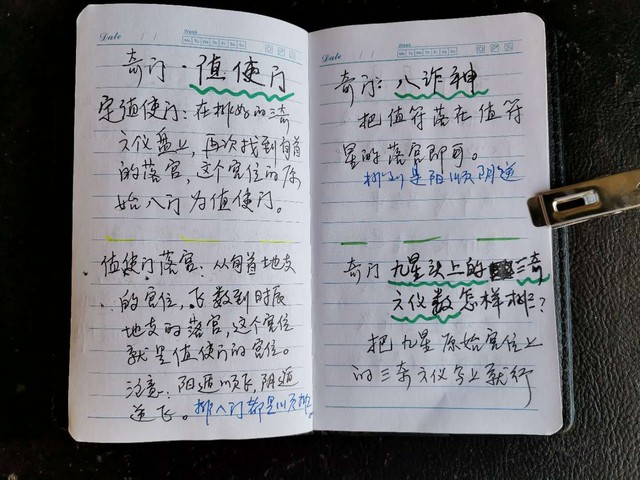 Date
Week
Mo Tu We Th Fr Sa Su
奇门·值使门
定值使门：在排好的三奇
六仪盘上，再次找到旬首
的落宫，这个宫位的原
始八门为值使门。
值使门落宫：从旬首地支
的宫位，飞数到时辰
地支的落宫，这个宫位
就是值使门的宫位。
注意：阳遁顺飞，阴遁
逆飞。排八门都是顺排。
Date
Week
Mo Tu We Th Fr Sa Su
奇门：八诈神
把值符落在值符
星的落宫即可。
排列是阳顺阴逆
奇门九星头上的三奇
六仪数怎样排？
把九星原始宫位上
的三奇六仪写上就行